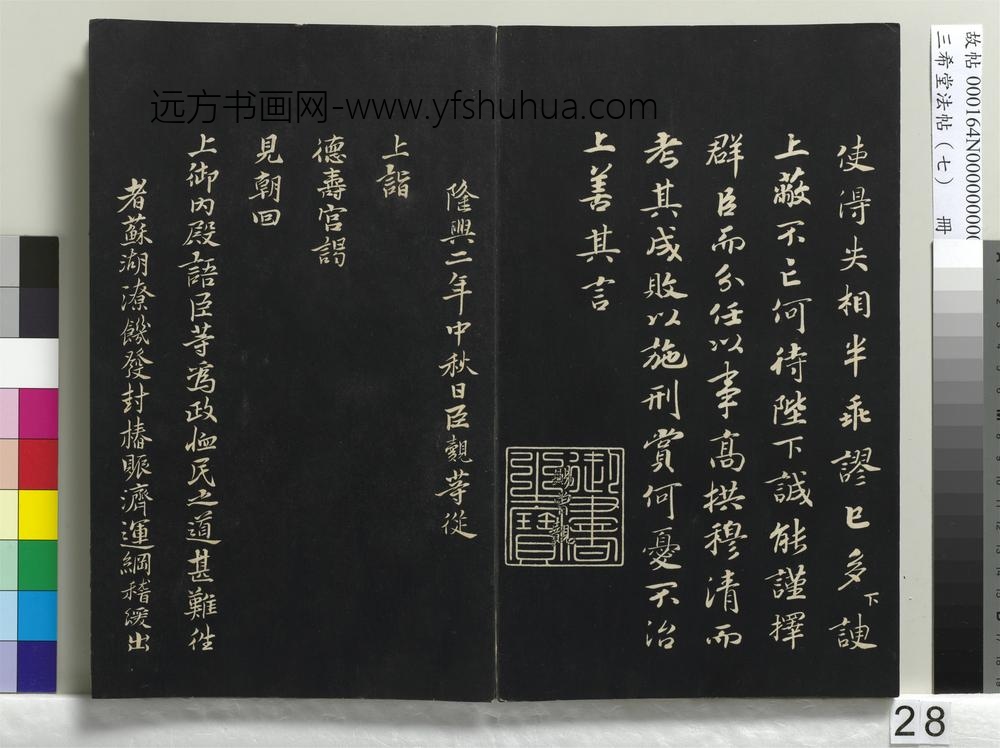 使得失相半乖謬已多下諛
上蔽不亡何待陛下誠能謹擇
群臣而分任以事高拱穆清而
考其成敗以施刑賞何憂不治
上善其言
御書之寶
賜曾覿
隆興二年中秋日臣覿等從
上詣
德壽宮謁
見朝回
上御內殿語臣等為政恤民之道甚難徃
者蘇湖潦饑發封樁賑濟運綱稽緩出
远方书画网-www.yfshuhua.com
故帖 000164N00000000
三希堂法帖(七) 冊
28